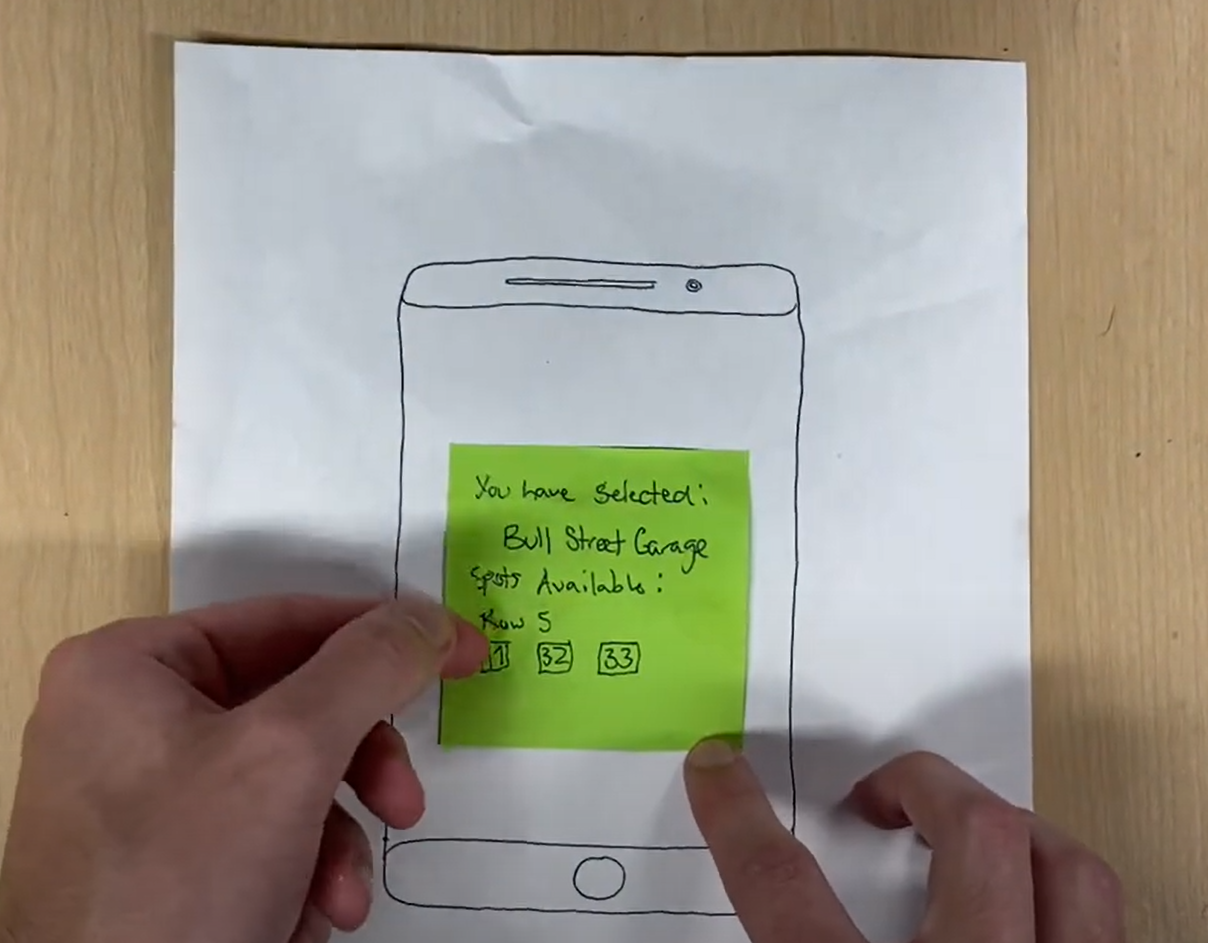 You have Selected:
Bull Street Garage
Spots Available:
Row 5
32 33